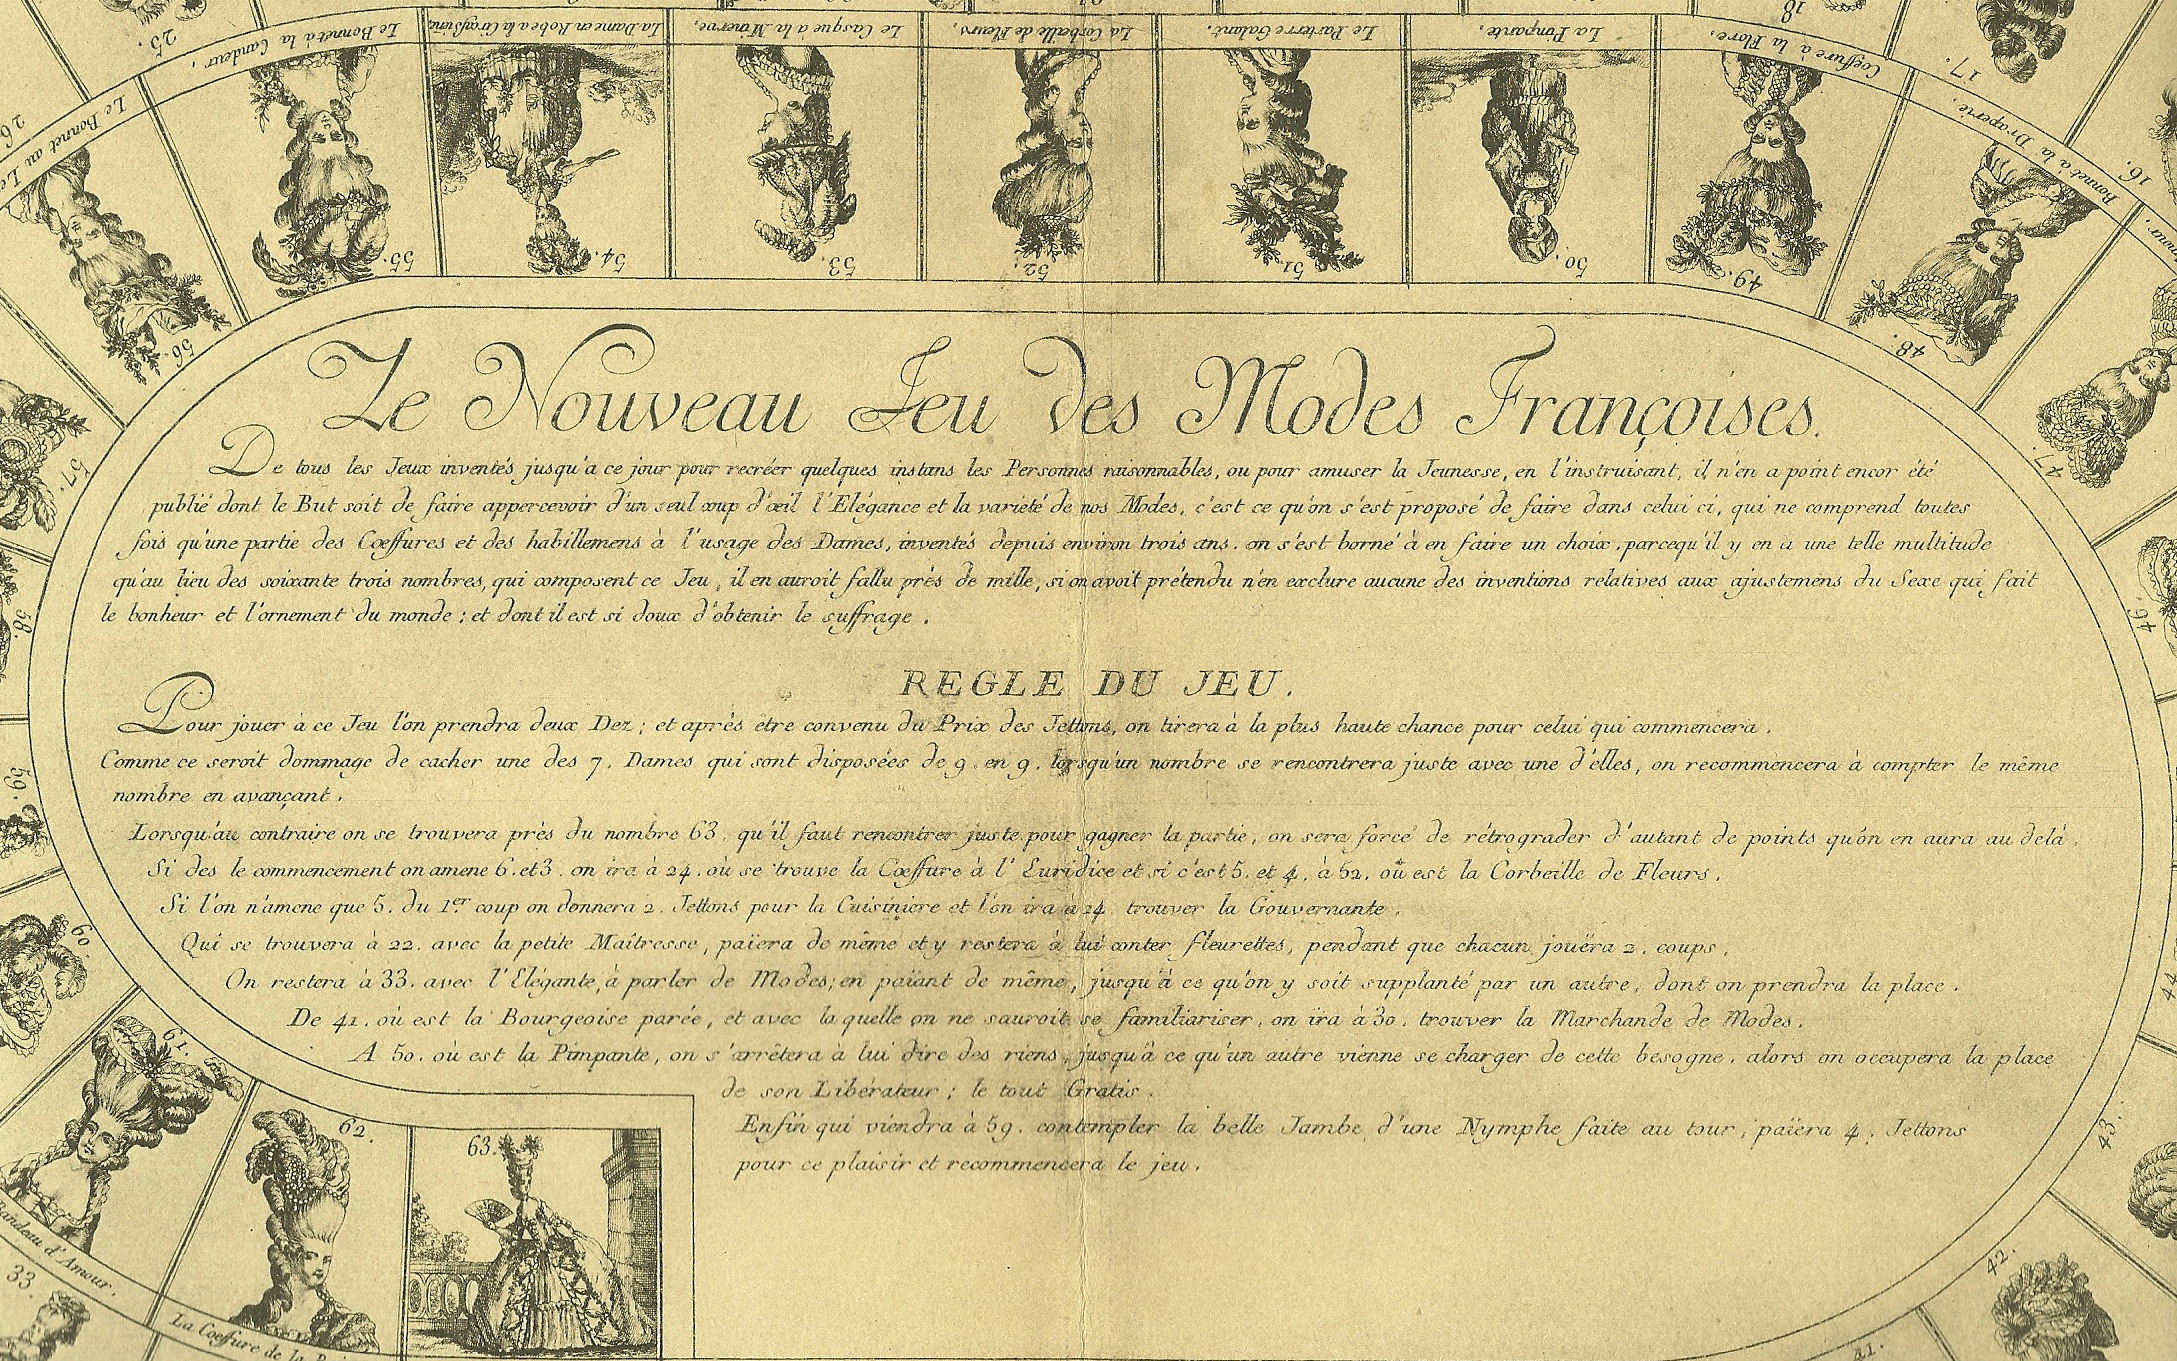 25.
Le Bonnet à la Candeur,
La Dame en Robe a la Circassienne
Le Casque à la Minerve,
La Corbeille de Fleurs,
Le Parterre Galant,
La Pimpante,
Coeffure à la Flore,
18
17.
Bonnet à la Draperie,
16.
26.
Le Bonnet au
56.
55.
54.
53.
52.
51.
50.
49.
48.
47.
57.
58.
59.
60.
46.
44.
43.
42.
41.
Le Nouveau Jeu des Modes Françoises.
De tous les Jeux inventés jusqu'a ce jour pour recréer quelques instans les Personnes raisonnables, ou pour amuser la Jeunesse, en l'instruisant, il n'en a point encor été
publié dont le But soit de faire appercevoir d'un seul coup d'œil l'Elégance et la varieté de nos Modes, c'est ce qu'on s'est proposé de faire dans celui ci, qui ne comprend toutes
fois qu'une partie des Cœffures et des habillemens à l'usage des Dames, inventés depuis environ trois ans. on s'est borné à en faire un choix, parcequ'il y en a une telle multitude
qu'au lieu des soixante trois nombres, qui composent ce Jeu, il en auroit fallu près de mille, si on avoit prétendu n'en exclure aucune des inventions relatives aux ajustemens du Sexe qui fait
le bonheur et l'ornement du monde ; et dont il est si doux d'obtenir le suffrage .
REGLE DU JEU.
Pour jouer à ce Jeu l'on prendra deux Dez ; et après etre convenu du Prix des Jettons, on tirera à la plus haute chance pour celui qui commencera .
Comme ce seroit dommage de cacher une des 7. Dames qui sont disposées de 9. en 9. lorsqu'un nombre se rencontrera juste avec une d'elles, on recommencera à compter le même
nombre en avançant .
Lorsqu'au contraire on se trouvera près du nombre 63. qu'il faut rencontrer juste pour gagner la partie, on sera forcé de rétrograder d'autant de points qu'on en aura au delà .
Si des le commencement on amene 6. et 3. on ira à 24. où se trouve la Cœffure à l'Euridice et si c'est 5. et 4. à 52. où est la Corbeille de Fleurs.
Si l'on n'amene que 5. du 1er coup on donnera 2. Jettons pour la Cuisiniere et l'on ira à 14 trouver la Gouvernante .
Qui se trouvera à 22. avec la petite Maîtresse, païera de même et y restera à lui conter fleurettes, pendant que chacun jouëra 2. coups .
On restera à 33. avec l'Elégante, à parler de Modes; en païant de même, jusqu'à ce qu'on y soit supplanté par un autre, dont on prendra la place .
De 41. où est la Bourgeoise parée, et avec laquelle on ne sauroit se familiariser, on ira à 30. trouver la Marchande de Modes.
A 50. où est la Pimpante, on s'arrêtera à lui dire des riens, jusqu'à ce qu'un autre vienne se charger de cette besogne, alors on occupera la place
de son Libérateur ; le tout Gratis .
Enfin qui viendra à 59. contempler la belle Jambe d'une Nymphe faite au tour, païera 4. Jettons
pour ce plaisir et recommencera le jeu .
61.
62.
63.
Bandeau d'Amour.
33.
La Coeffure de la